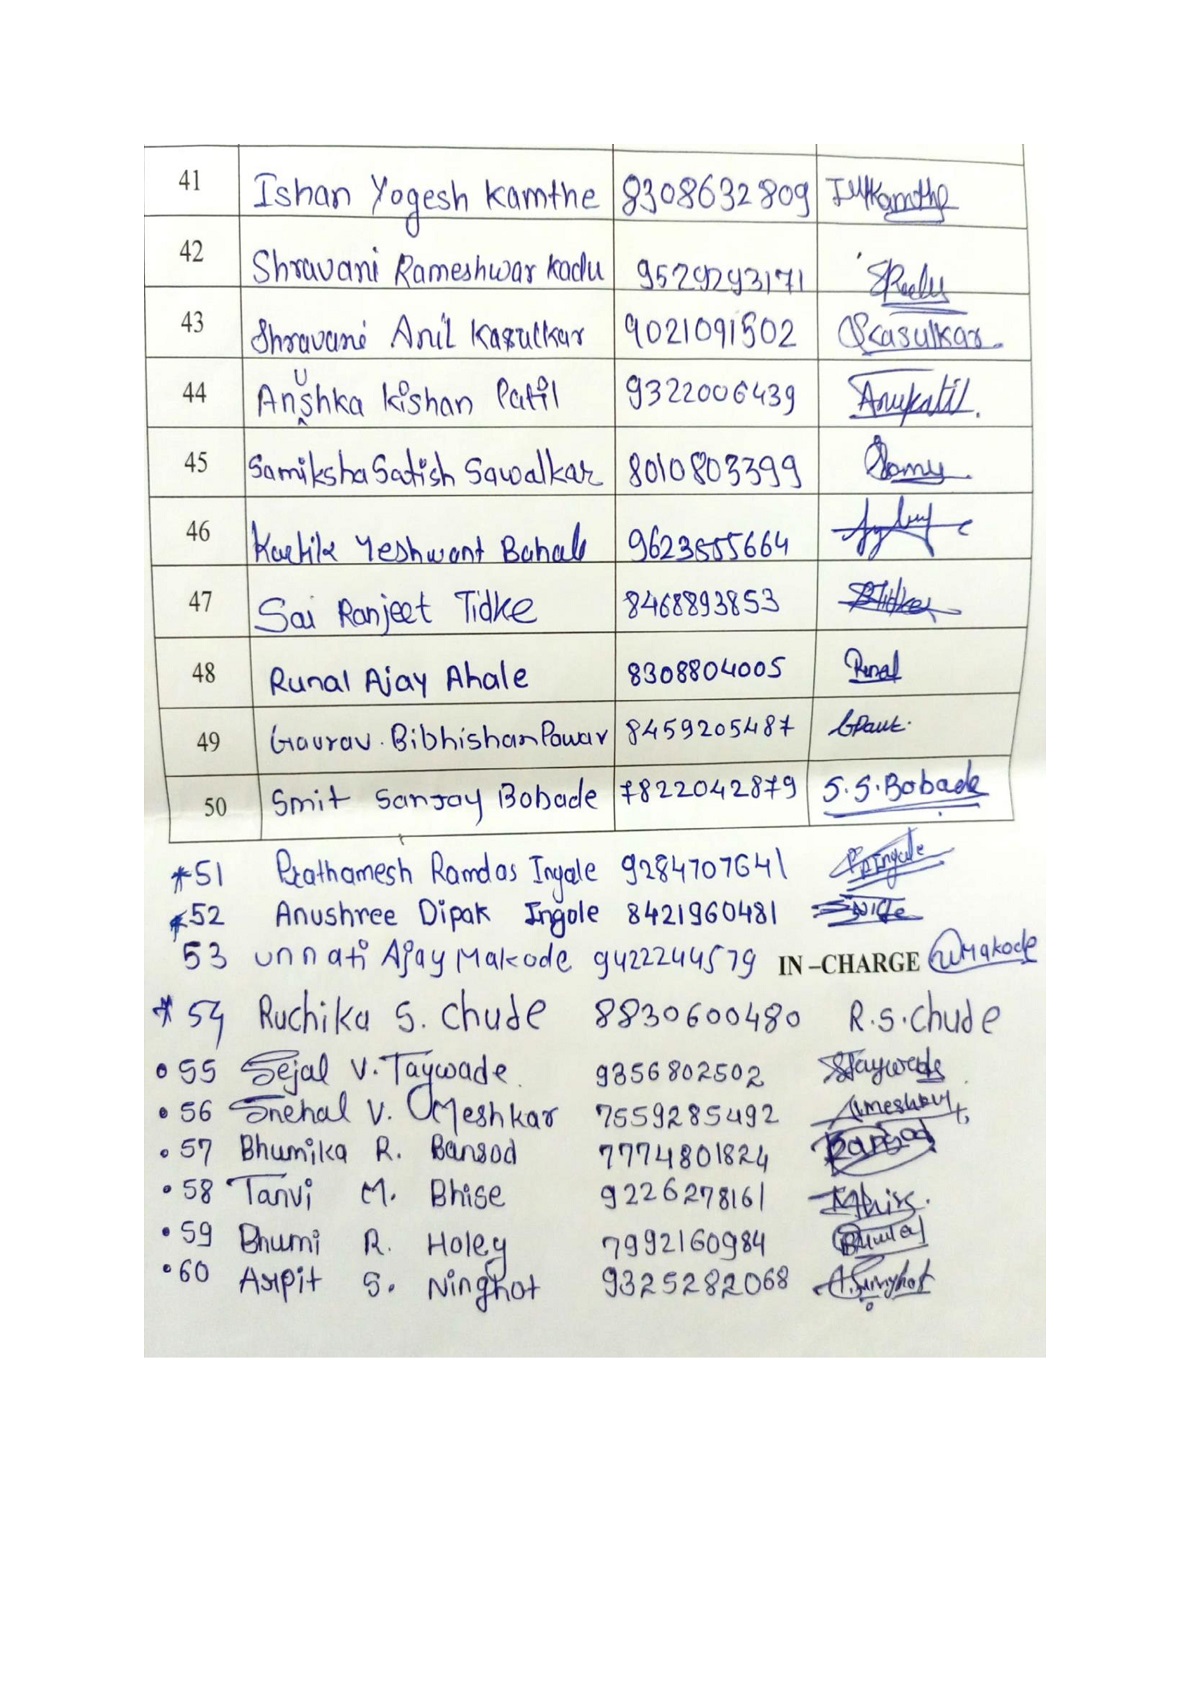 41 Ishan Yogesh Kamthe 8308632809 IYKamthe
42 Shravani Rameshwar Kadu 9529293171
43 Shravani Anil Kasulkar 9021091502 SKasulkar
44 Anushka Kishan Patil 9322006439 Anupatil.
45 Samiksha Satish Sawalkar 8010803399 Samy
46 Kartik Yeshwant Bahale 9623555664
47 Sai Ranjeet Tidke 8468893853 STidke
48 Runal Ajay Ahale 8308804005 Runal
49 Gaurav. Bibhishan Pawar 8459205487
50 Smit Sanjay Bobade 7822042879 S.S.Bobade
*51 Prathamesh Ramdas Ingale 9284707641 PRIngale
*52 Anushree Dipak Ingole 8421960481
53 Unnati Ajay Makode 9422244579 IN–CHARGE UMakode
*54 Ruchika S. Chude 8830600480 R.S.Chude
• 55 Sejal V. Taywade. 9356802502 STaywade
• 56 Snehal V. Omeshkar 7559285492
• 57 Bhumika R. Bansod 7774801824 Bansod
• 58 Tanvi M. Bhise 9226278161
• 59 Bhumi R. Holey 7992160984
• 60 Arpit S. Ninghot 9325282068